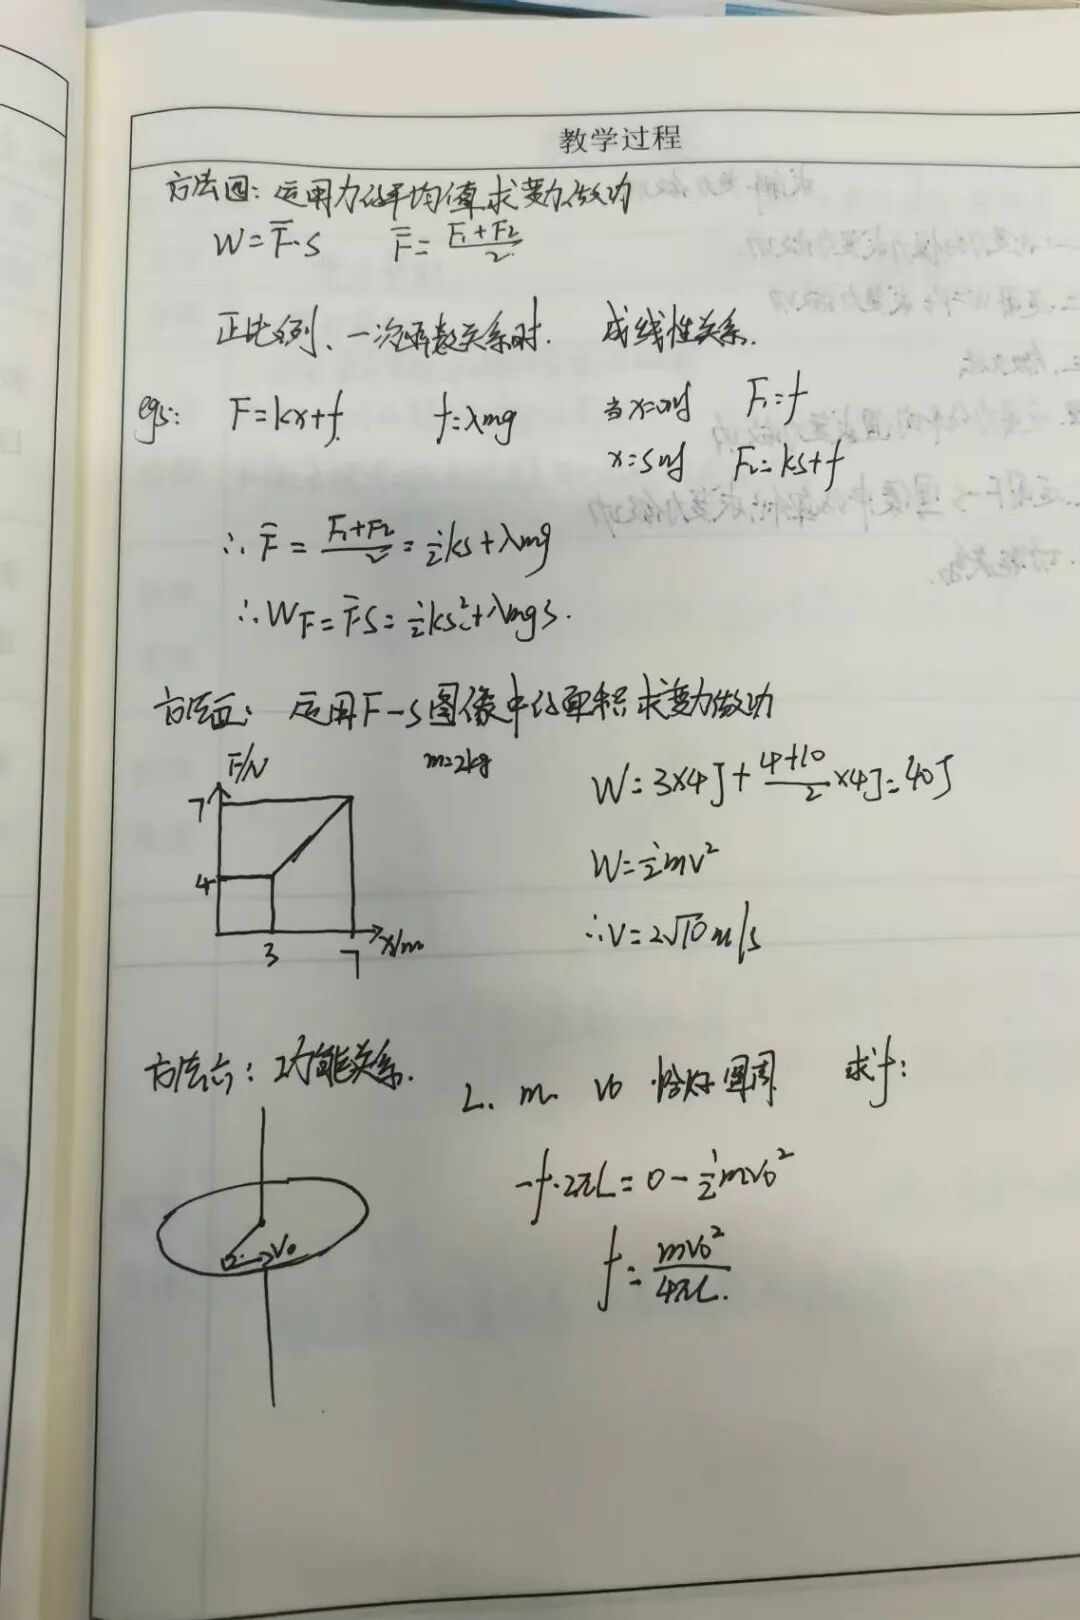 教学过程
方法四：运用力的平均值求变力做功
W=F̄·s F̄=(F₁+F₂)/2
正比例、一次函数关系时. 成线性关系.
eg5: F=kx+f. f=λmg 当x=0时 F₁=f
x=s时 F₂=ks+f
∴F̄=(F₁+F₂)/2=½ks+λmg
∴W_F=F̄s=½ks²+λmgs.
方法五：运用F-s图像中的面积求变力做功
F/N m=2kg W=3×4J+(4+10)/2×4J=40J
7
4 W=½mv²
3 7 x/m ∴V=2√10m/s
方法六：功能关系.
L. m. v₀ 恰好圆周 求f:
-f·2πL=0-½mv₀²
V₀
f=mv₀²/4πL.